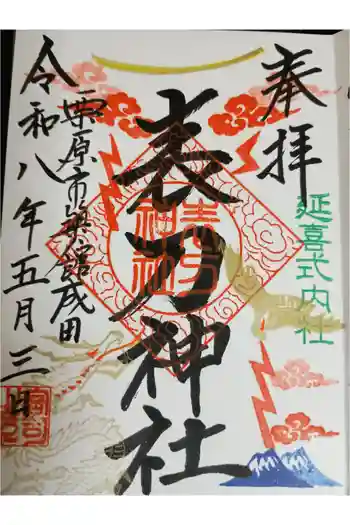 奉拝
延喜式内社
表刀神社
表刀
神社
栗原市築館成田
令和八年五月三日